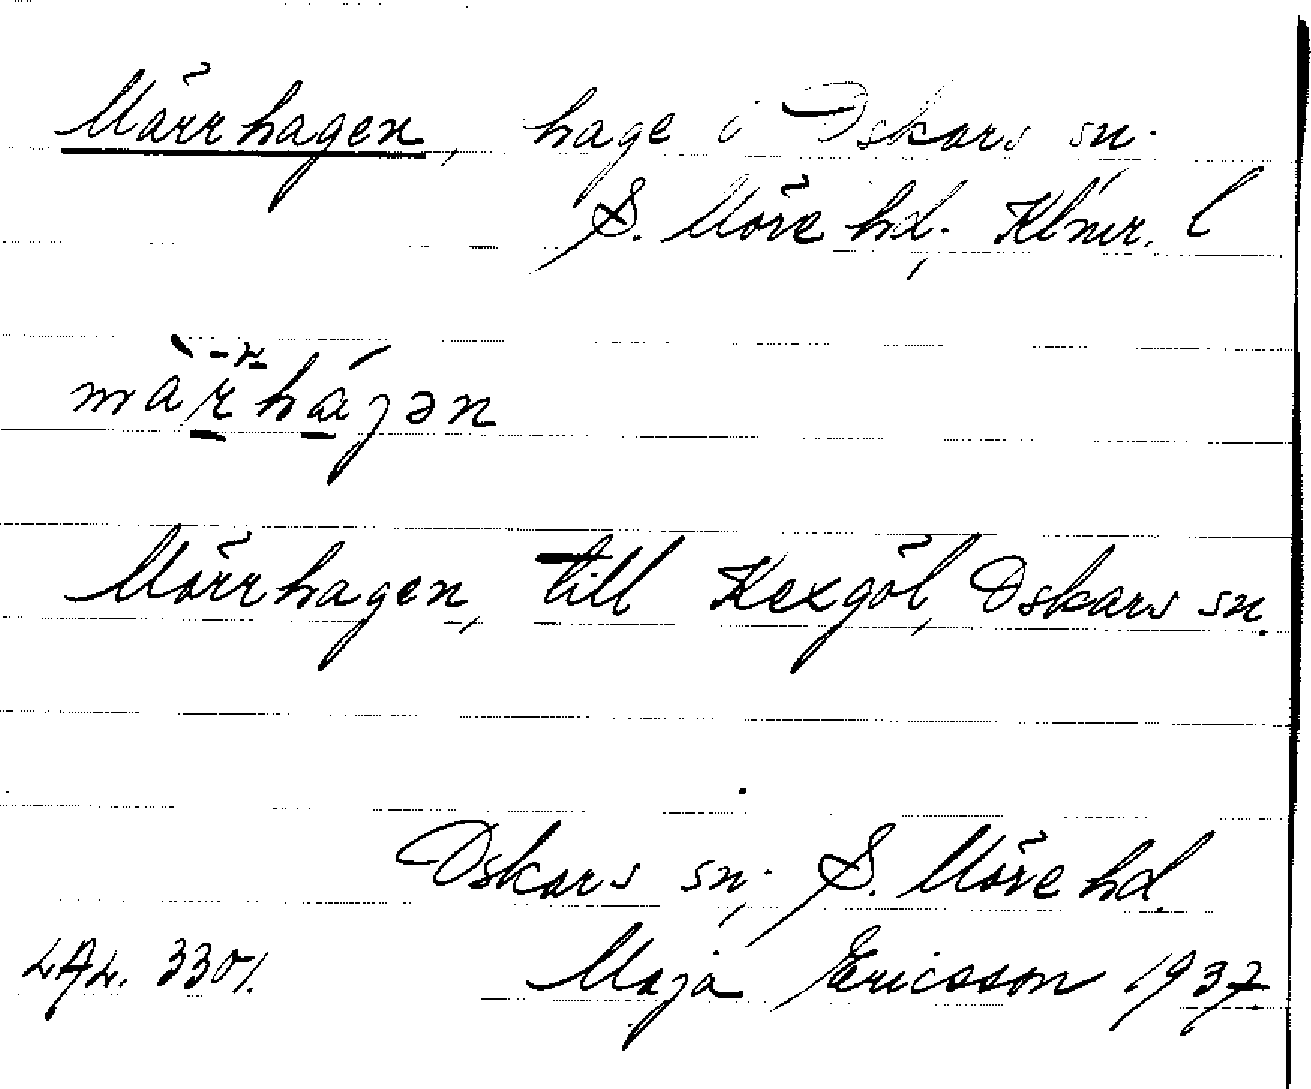 Märrhagen, hage i Oskars sn.
S. Möre hd. Klmr. l
Märrhagen, till Kexgöl, Oskars sn.
Oskars sn, S. Möre hd.
LAL. 3301. Maja Ericsson 1937